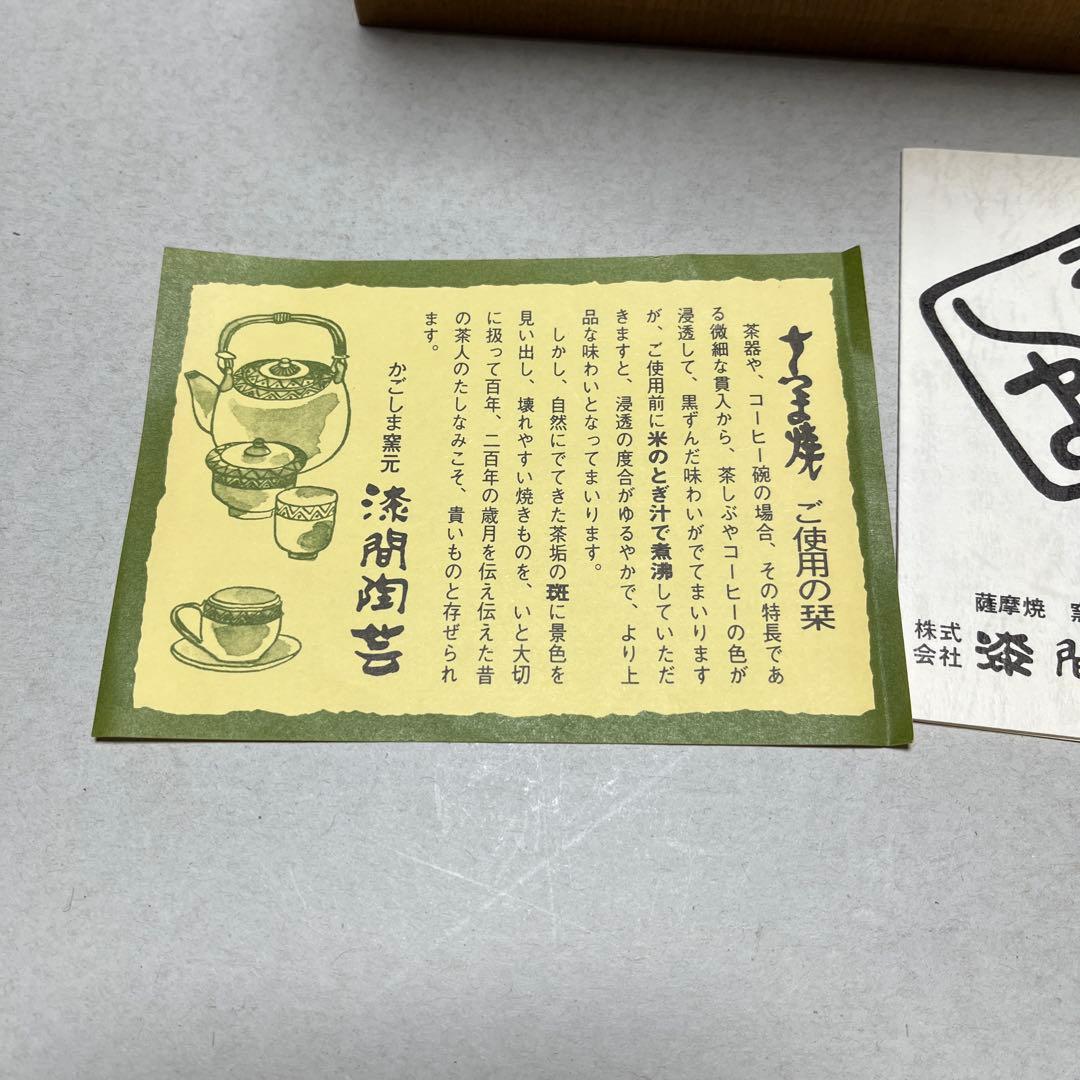 さつま焼 ご使用の栞
茶器や、コーヒー碗の場合、その特長であ
る微細な貫入から、茶しぶやコーヒーの色が
浸透して、黒ずんだ味わいがでてまいります
が、ご使用前に米のとぎ汁で煮沸していただ
きますと、浸透の度合がゆるやかで、より上
品な味わいとなってまいります。
しかし、自然にでてきた茶垢の斑に景色を
見い出し、壊れやすい焼きものを、いと大切
に扱って百年、二百年の歳月を伝え伝えた昔
の茶人のたしなみこそ、貴いものと存ぜられ
ます。
かごしま窯元 漆間陶芸
薩摩焼 窯
株式会社 漆間